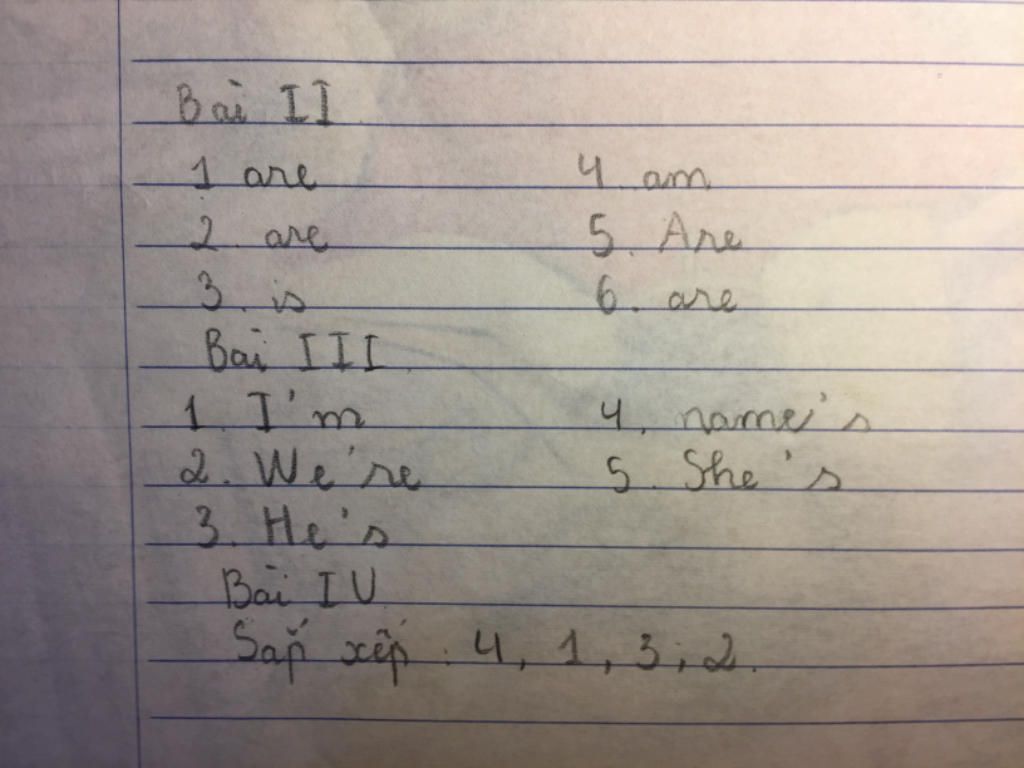 Bài II
1 are 4. am
2. are 5. Are
3. is 6. are
Bài III
1. I'm 4. name's
2. We're 5. She's
3. He's
Bài IV
Sắp xếp : 4, 1, 3, 2.